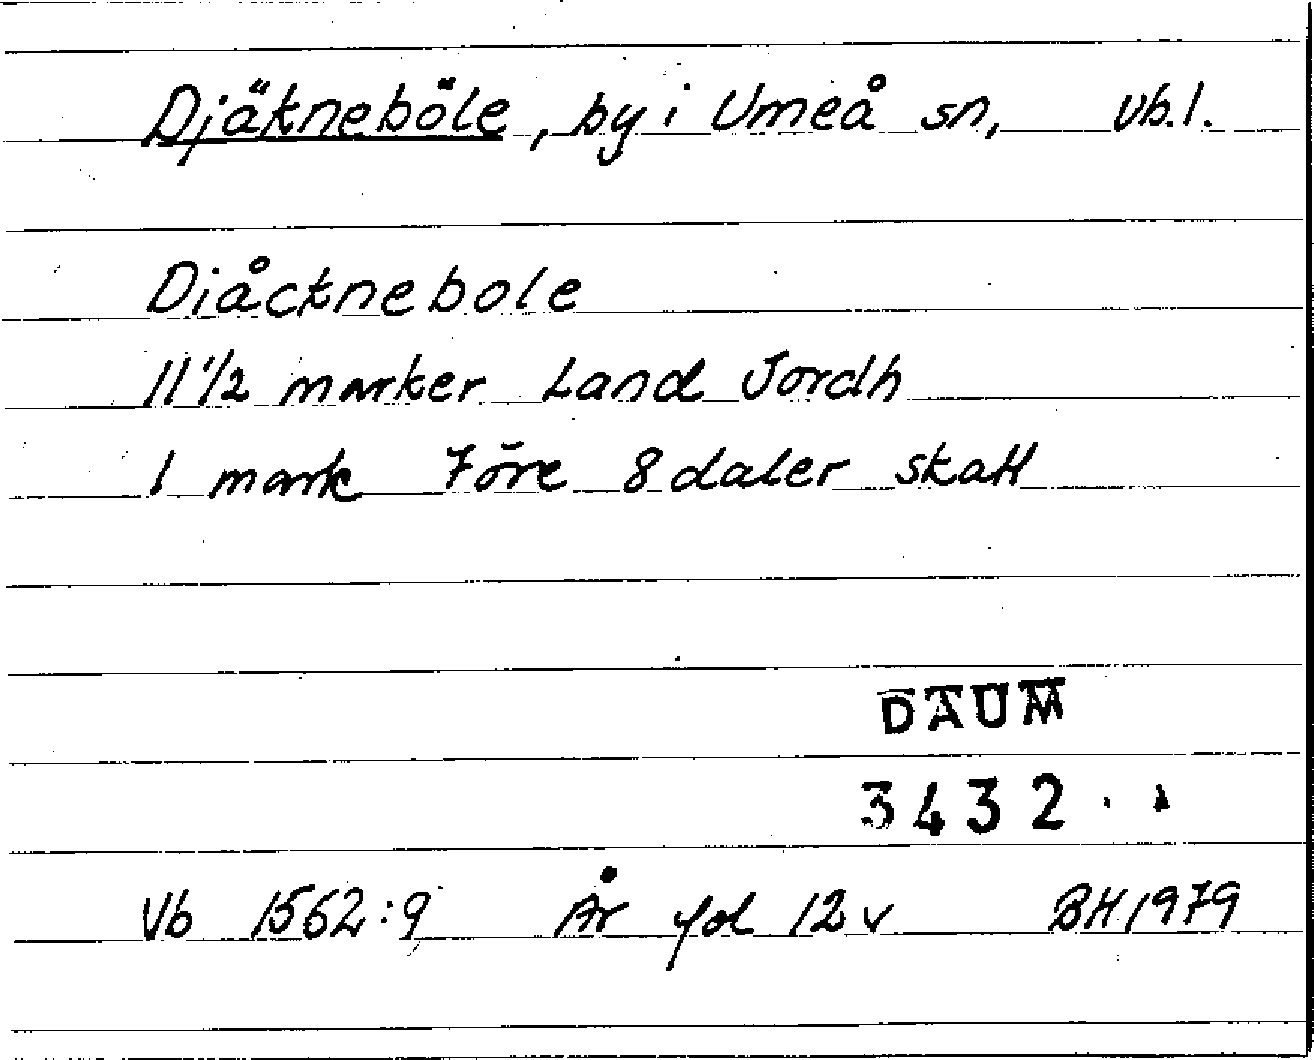 Djäkneböle, by i Umeå sn, vb.l.
Diåcknebole
11 1/2 marker Land Jordh
1 mark före 8 daler skatt
DAUM
3432
Vb 1562:9 År fol 12 v BH 1979